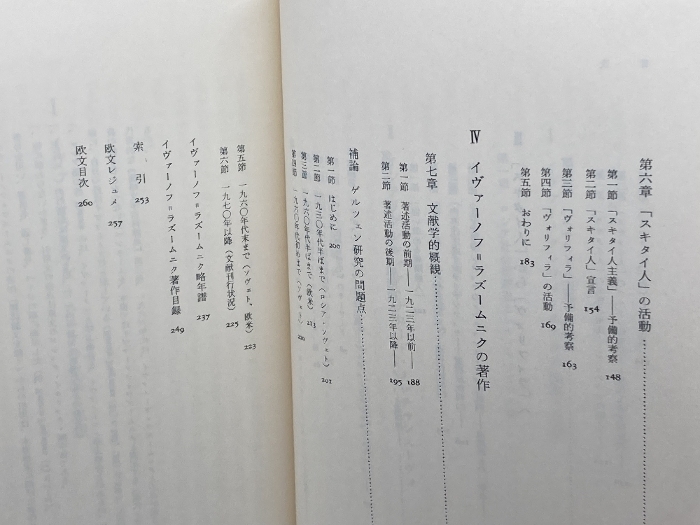 第六章 「スキタイ人」の活動……………
第一節 「スキタイ人主義」——予備的考察 148
第二節 「スキタイ人」宣言 154
第三節 「ヴォリフィラ」——予備的考察 163
第四節 「ヴォリフィラ」の活動 169
第五節 おわりに 183
Ⅳ イヴァーノフ゠ラズームニクの著作
第七章 文献学的概観……………
第一節 著述活動の前期——一九二三年以前—— 188
第二節 著述活動の後期——一九二三年以降—— 195
補論 ゲルツェン研究の問題点……………
第一節 はじめに 200
第二節 一九三〇年代半ばまで〈ロシア・ソヴェト〉 201
第三節 一九六〇年代半ばまで〈欧米〉 213
第四節 一九六〇年代初めまで〈ソヴェト〉
第五節 一九六〇年代末まで〈ソヴェト、欧米〉 223
第六節 一九七〇年以降〈文献刊行状況〉 225
イヴァーノフ゠ラズームニク略年譜 237
イヴァーノフ゠ラズームニク著作目録 249
索引 253
欧文レジュメ 257
欧文目次 260